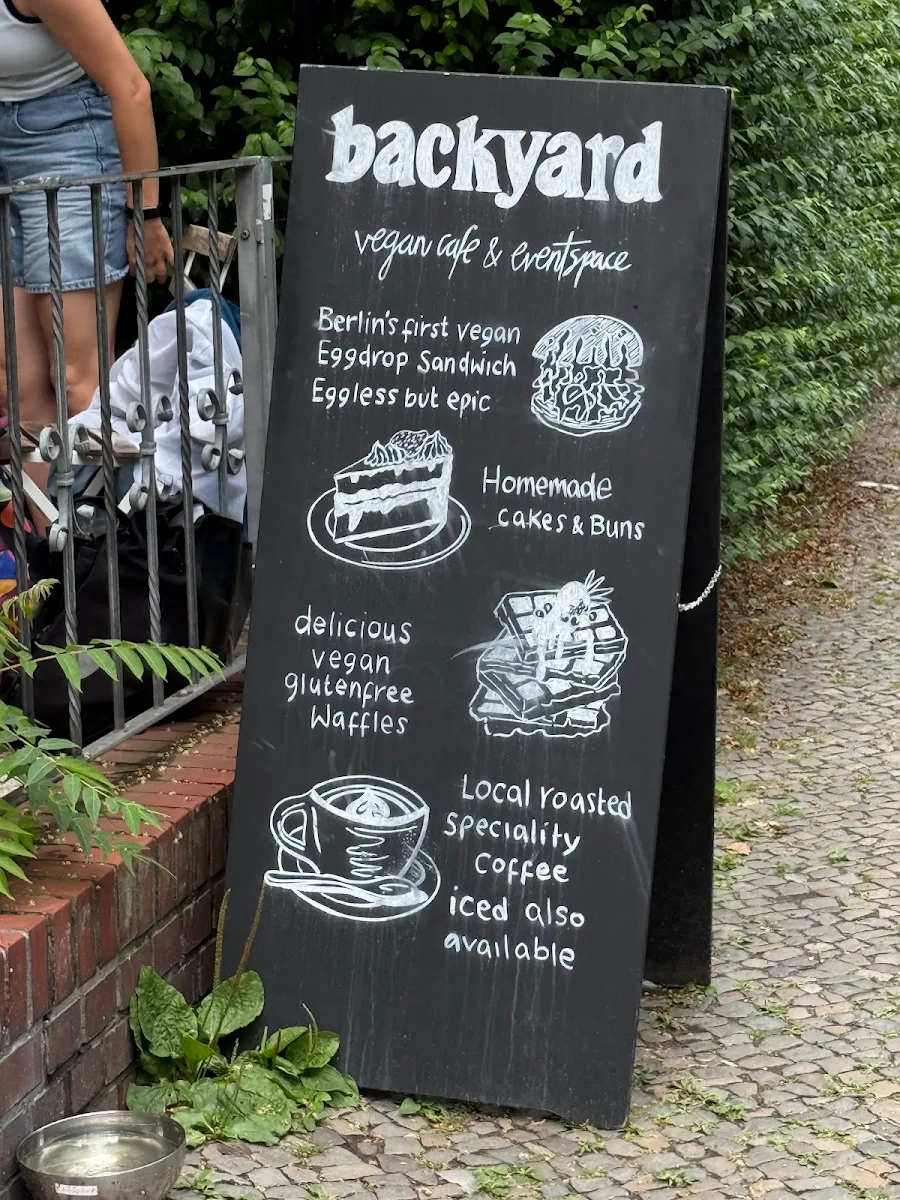 backyard
vegan cafe & eventspace
Berlin's first vegan
Eggdrop Sandwich
Eggless but epic
Homemade
cakes & Buns
delicious
vegan
glutenfree
Waffles
Local roasted
Speciality
Coffee
iced also
available